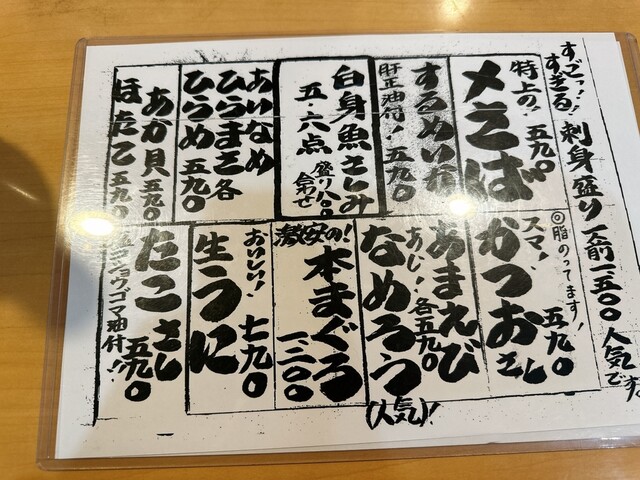 すごーッ!
すぎる!刺身盛り一人前一、五〇〇人気です
特上の!五九〇
〆さば
するめいか
肝正油付!五九〇
白身魚さしみ
五・六点盛り合わせ
あいなめ
ひらまさ各
ひらめ五九〇
あか貝五九〇
ほたて五九〇
◎脂のってます!
スマ!五九〇
かつおさし
あまえび
あじ!各五九〇
なめろう
(人気)!
激安の!
本まぐろ
一、二〇〇
おいしい!七九〇
生うに
たこさし
五九〇
塩コショウゴマ油付!